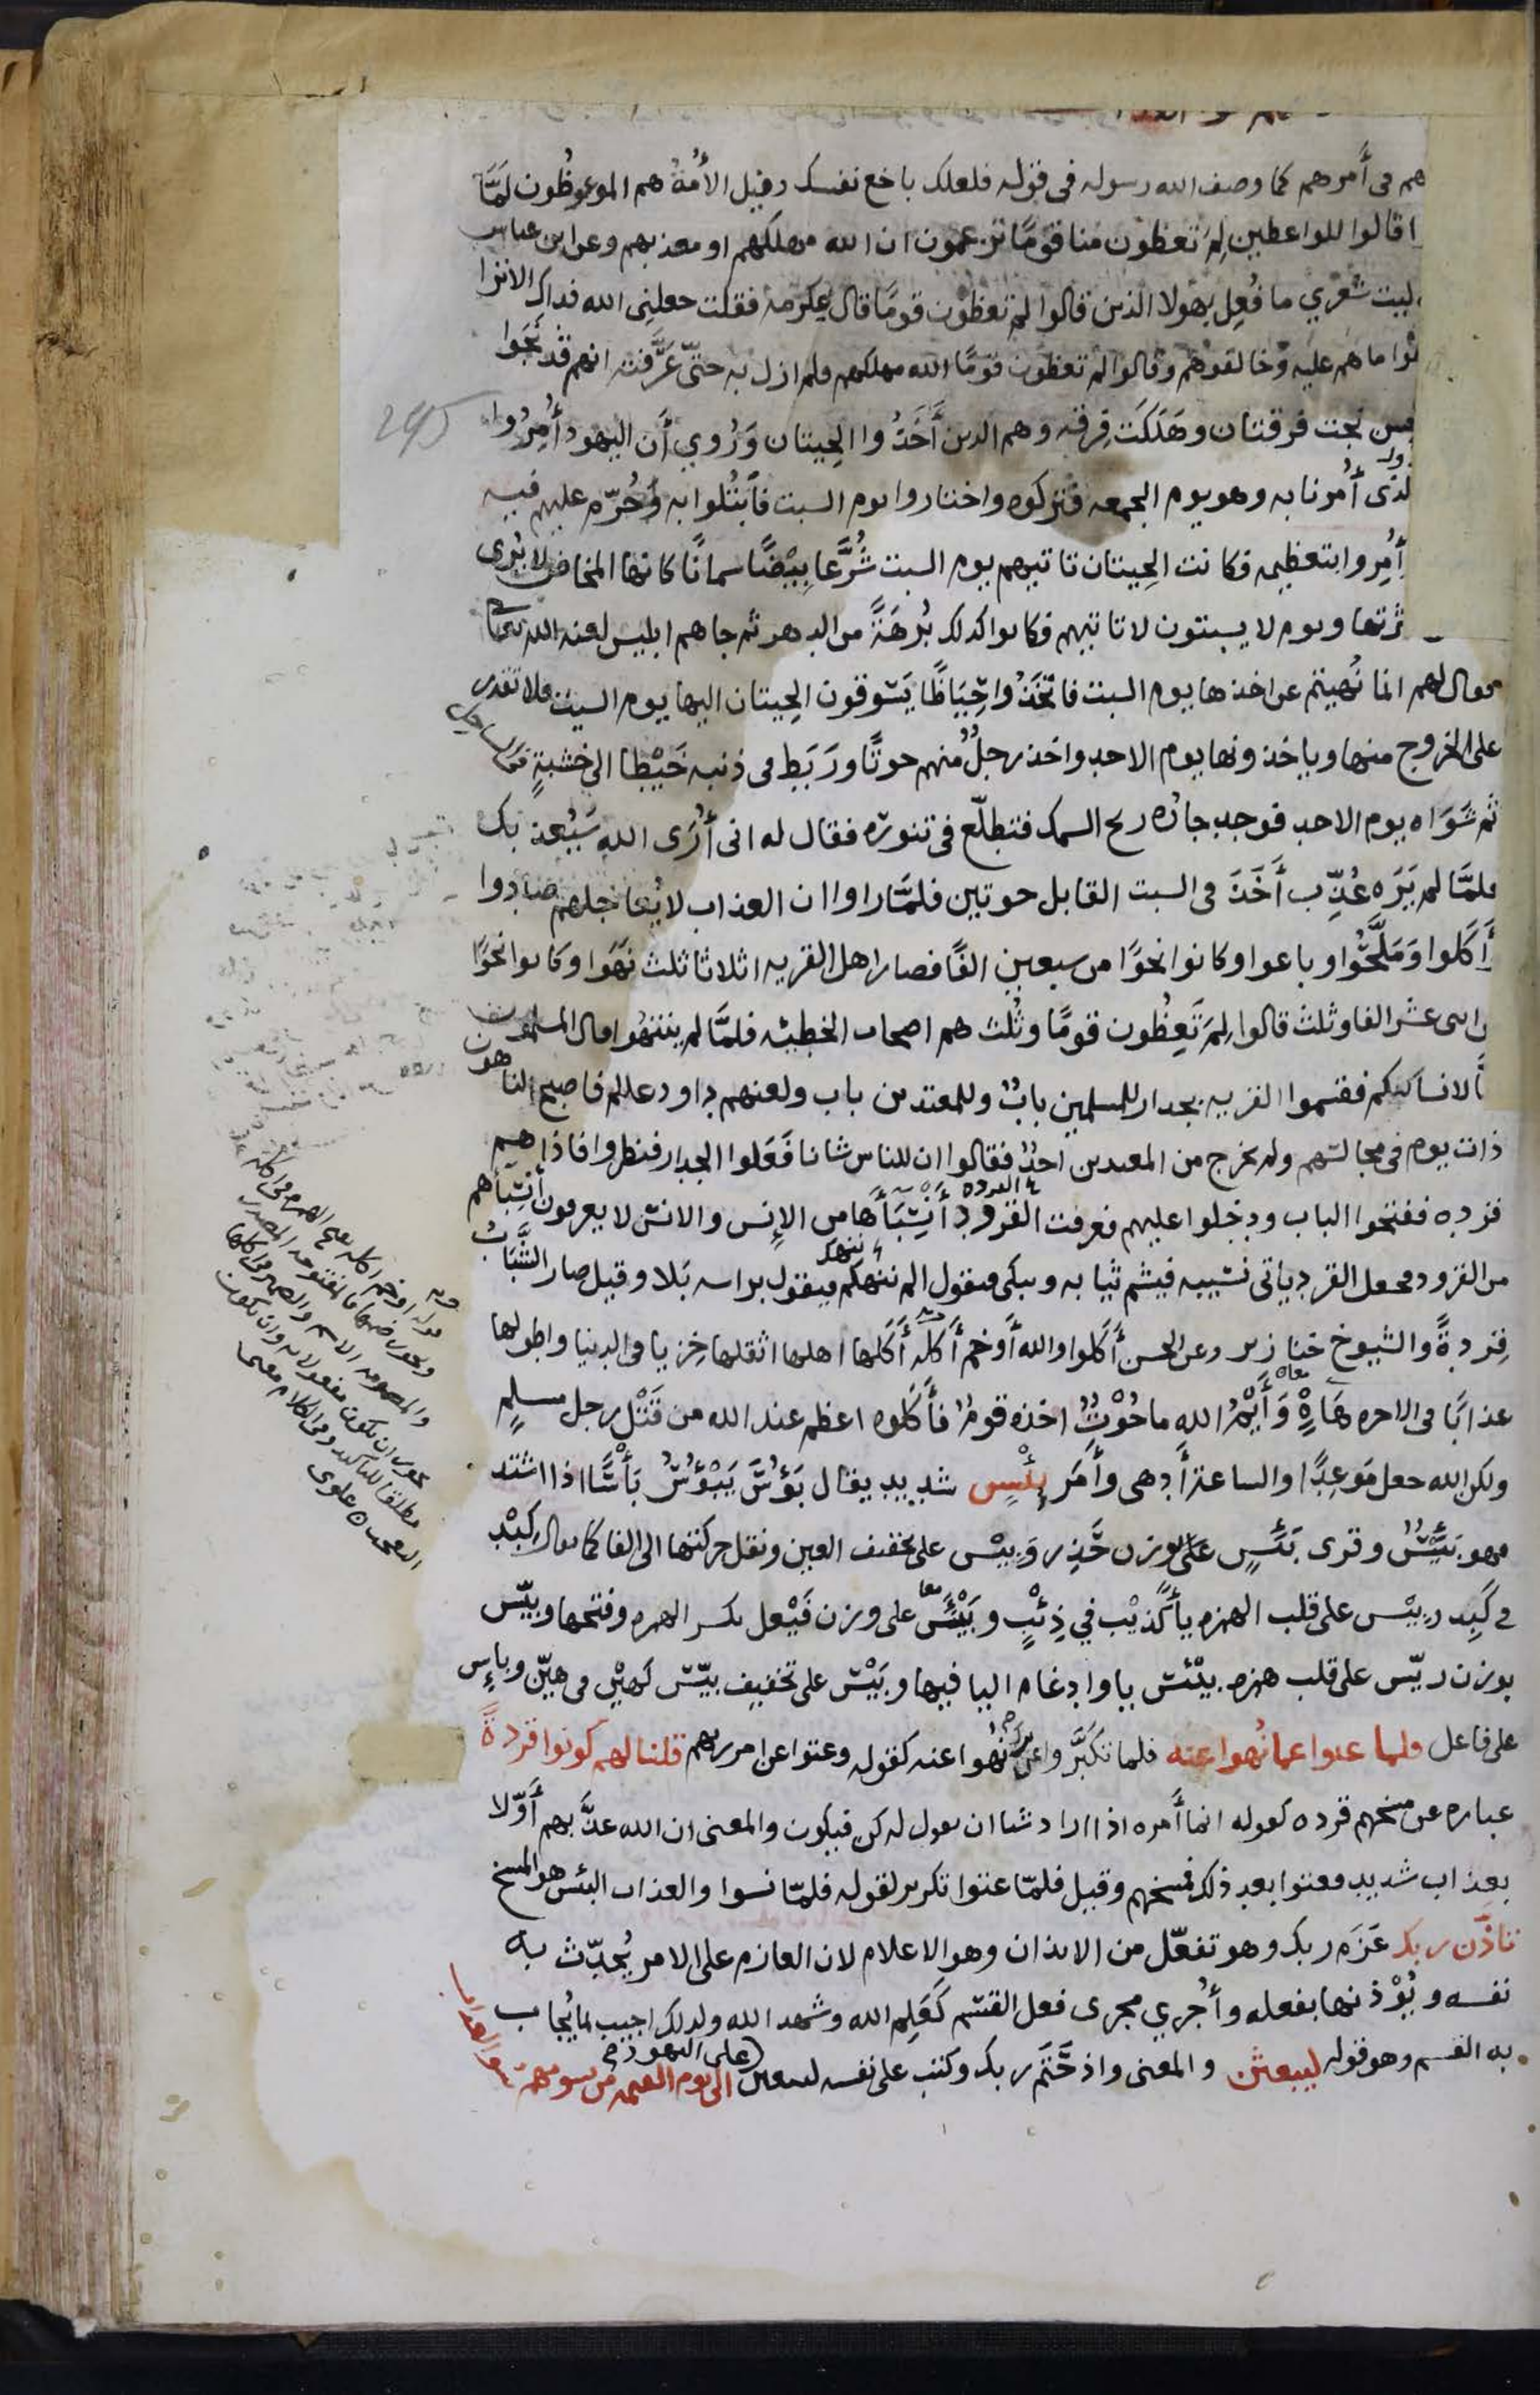 هم فى أمرهم كما وصف الله رسوله فى قوله فلعلك باخع نفسك وقيل الأمة هم الموعوظون لمّا
ا قالوا للواعظين لِمَ تعظون منا قومًا تزعمون ان الله مهلكهم او معذبهم وعن ابن عباس
ليت شعري ما فُعِل بهولا الذين قالوا لم تعظون قومًا قال عكرمه فقلت جعلنى الله فداك الا ترا
هوا ما هم عليه وخالفوهم وقالوا لم تعظون قومًا الله مهلكهم فلم ازل به حتّى عَرَّفته انهم قد نَجَوا
نجت فرقتان وهَلَكَت فِرقه وهم الذين أخَذُوا الحِيتان وَرُوي أَن اليهود أُمِرُوا
لذى أُمرنا به وهو يوم الجمعه فتركوه واختاروا يوم السبت فابتُلوا به وحُرّم عليهم فيه
أُمِروا بتعظيمه فكانت الحِيتان تاتيهم يوم السبت شُرَّعا بِيْضًا سمانًا كانها المخاض لا يُرى
ويوم لا يسبتون لا تاتيهم فكانوا كذلك بُرهَةً من الدهر ثم جاهم ابليس لعنه الله
فقال لهم انما نُهيتم عن اخذها يوم السبت فاتخَذُوا حِيَاضًا يَسُوقون الحِيتان اليها يوم السبت فلا تقدر
على الخروج منها وياخذونها يوم الاحد واخذ رجلٌ منهم حوتًا ورَبَط فى ذنبه خَيْطا الى خشبةٍ فى الساحل
ثم شَوَاه يوم الاحد فوجد جاره ريح السمك فتطلّع فى تنوره فقال له انى أَرَى الله سَيُعذبك
فلمَّا لم يَرَه عُذِّب أَخَذَ فى السبت القابل حوتين فلمَّا راوا ان العذاب لا يُعاجلهم صادوا
أَكلوا وَمَلَّحُوا وباعوا وكانوا نحوًا من سبعين الفًا فصار اهل القريه اثلاثا ثلث نَهَوا وكانوا نحوًا
من اثنى عشر الفا وثلث قالوا لِمَ تَعِظُون قومًا وثُلث هم اصحاب الخطيئه فلمَّا لم ينتهُوا قال المسلمون
انا لا نساكنكم فقسموا القريه بجدار للمسلمين بابٌ وللمعتدين باب ولعنهم داود عللم فاصبح الناهون
ذات يوم فى مجالسهم ولم يخرج من المعتدين احدٌ فقالوا ان للناس شانا فَعَلوا الجدار فنظروا فاذا هم
قرده ففتحوا الباب ودخلوا عليهم فعرفت القرود أَنْسِبَاَءَها من الإنس والانس لا يعرفون أنسِبَآهم
من القرود فجعل القرد ياتى نسيبه فيشم ثيابه ويبكى فيقول الم ننهكم فيقول براسه بَلا وقيل صار الشُّبَّانُ
قِردةً والشيوخ خنازير وعن الحسن أَكَلوا والله أَوخم أَكلَه أَكَلها اهلها اثقلها خِزيا فى الدنيا واطولها
عذابًا فى الاخره هَاهْ وَأَيْمُ الله ما حُوْتٌ اخذه قومٌ فأَكلوه اعظم عند الله من قَتْلِ رجل مسلمٍ
ولكن الله جعل مَوعِدًا والساعة أَدهى وأَمَر بِئْسٍ شديد يقال بَؤُسَ يَبْؤُسُ بَأْسًا اذا اشتد
فهو بَئِيْسٌ وقرى بَئِسٍ على وزن حَذِر وَبِيْس على تخفيف العين ونقل حركتها الى الفا كما يقال كِبْد
فى كَبِد وبِيْس على قلب الهمزه يا كَذيْب في ذِئْبٍ وبَيْئَسٌ على وزن فَيْعل بكسر الهمزه وفتحها وبيّس
بوزن ريّس على قلب همزه بيْئس يا وادغام اليا فيها وبَيْس على تخفيف بيّس كَهيْن فى هيّن وبائِس
على فاعل فلما عتوا عما نُهوا عنه فلما تكبَّروا عن ترك ما نُهُوا عنه كقوله وعتوا عن امر ربهم قلنا لهم كونوا قردةً
عباره عن مسخهم قرده كقوله انما أَمره اذا اراد شيا ان يقول له كن فيكون والمعنى ان الله عذَّبهم أَوّلا
بعذاب شديد فعتوا بعد ذلك فمسخهم وقيل فلمّا عتوا تكرير لقوله فلمّا نسوا والعذاب البئس هو المسخ
تاذّن ربك عَزَم ربك وهو تفعّل من الايذان وهو الاعلام لان العازم على الامر يُحدّث به
نفسه ويُوْذنها بفعله وأُجري مجرى فعل القسم كَعَلِم الله وشهد الله ولذلك اجيب بما يُجاب
به القسم وهو قوله ليبعثن والمعنى واذ حَتَم ربك وكتب على نفسه ليبعثن على اليهود الى يوم القيمه من يسومهم سو العذاب
245
قوله اوخم اكله بفتح الهمزه فى اكله
ويجوز ضمها فالمفتوحه المصدر
والمضمومه الاسم والضمير فى اكلها
يجوز ان يكون مفعولا به وان يكون
مطلقا للتاكيد وفى الكلام معنى
التعجب علوى